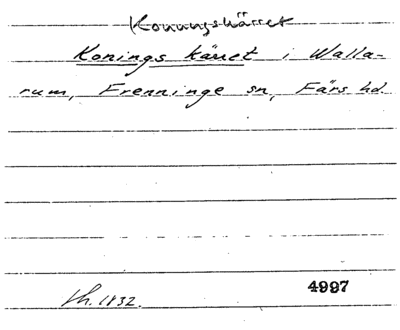 Konungskärret
Konings käuet i Walla-
rum, Frenninge sn, Färs hd.
th. 1832.
4997